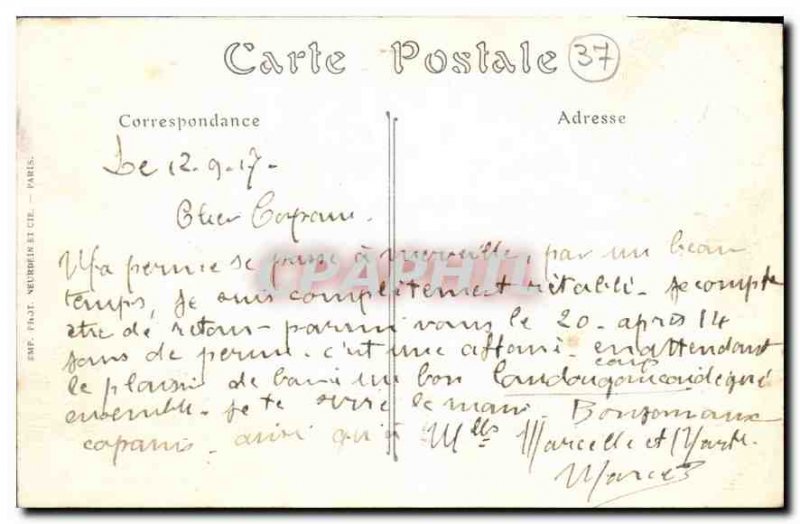 Carte Postale
37
Correspondance
Adresse
Le 12-9-17-
Cher Copain.
Ma perme se passe à merveille, par un beau
temps, je suis complètement rétabli - je compte
être de retour parmi vous le 20 - après 14
jours de perm. c'est une affaire - en attendant
le plaisir de boire un bon coup
ensemble - je te serre la main. Bonjour aux
copains - ainsi qu'à Mlls Marcelle et Marthe
Marcel
EMP. PHOT. NEURDEIN ET CIE. — PARIS.
CPAPHIL